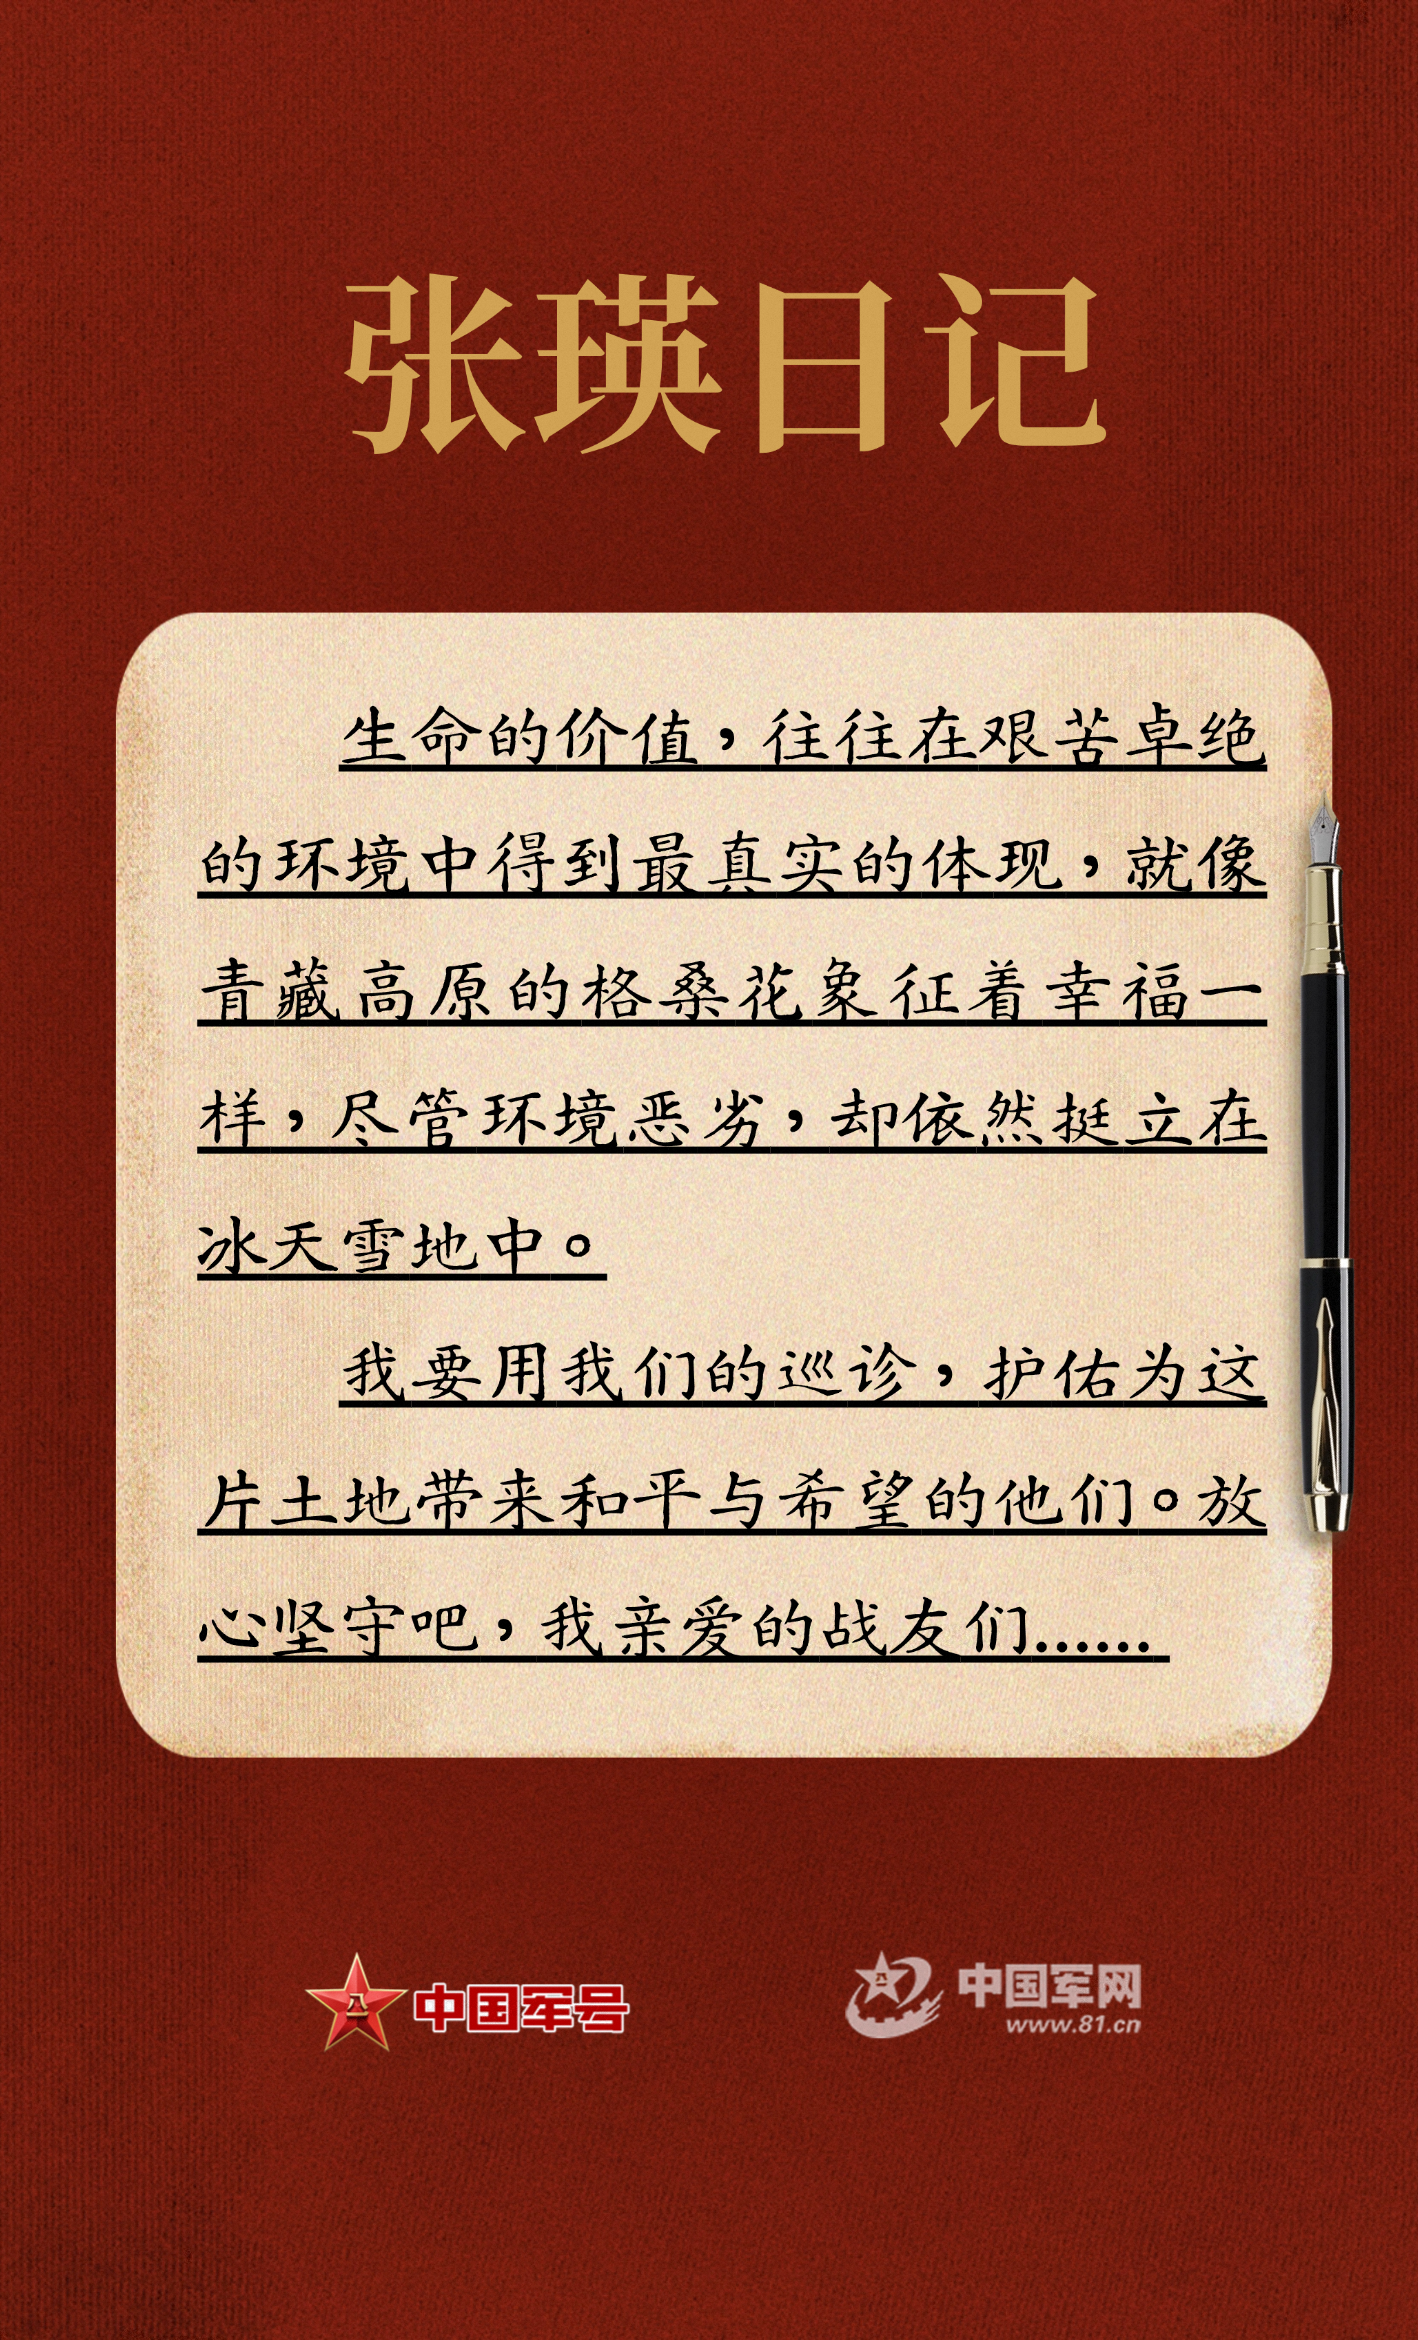 张瑛日记
生命的价值，往往在艰苦卓绝
的环境中得到最真实的体现，就像
青藏高原的格桑花象征着幸福一
样，尽管环境恶劣，却依然挺立在
冰天雪地中。
我要用我们的巡诊，护佑为这
片土地带来和平与希望的他们。放
心坚守吧，我亲爱的战友们……
八一 中国军号
八一 中国军网
www.81.cn